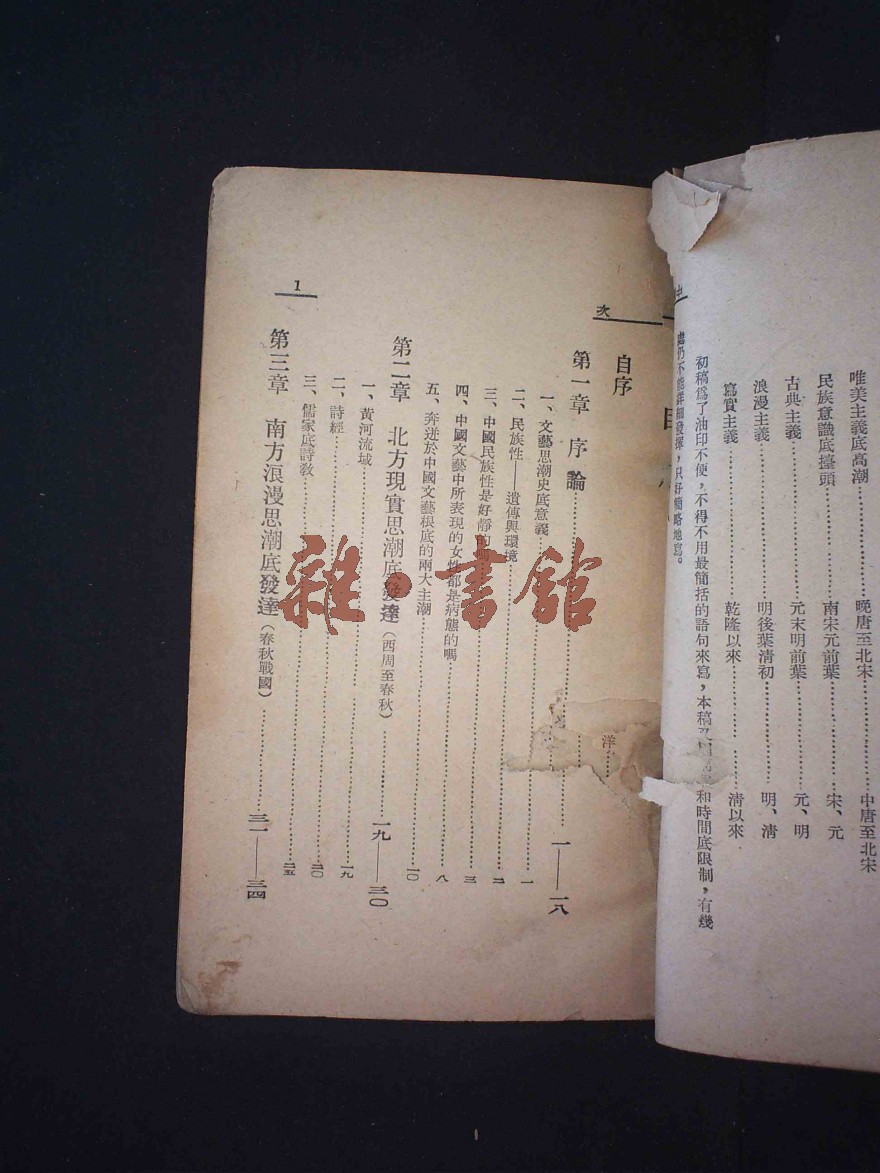 唯美主義底高潮………晚唐至北宋………中唐至北宋
民族意識底擡頭………南宋元前葉………宋、元
古典主義………元末明前葉………元、明
浪漫主義………明後葉清初………明、清
寫實主義………乾隆以來………清以來
初稿爲了油印不便，不得不用最簡括的語句來寫，本稿和時間底限制，有幾
處仍不能詳細發揮，只好簡略地寫。
目
次
自序
第一章 序論………一——一八
一、文藝思潮史底意義………一
二、民族性——遺傳與環境………二
三、中國民族性是好靜的………三
四、中國文藝中所表現的女性都是病態的嗎………八
五、奔迸於中國文藝根底的兩大主潮………一〇
第二章 北方現實思潮底發達（西周至春秋）………一九——三〇
一、黃河流域………一九
二、詩經………二〇
三、儒家底詩教………二五
第三章 南方浪漫思潮底發達（春秋戰國）………三一——三四
1
雜·書館